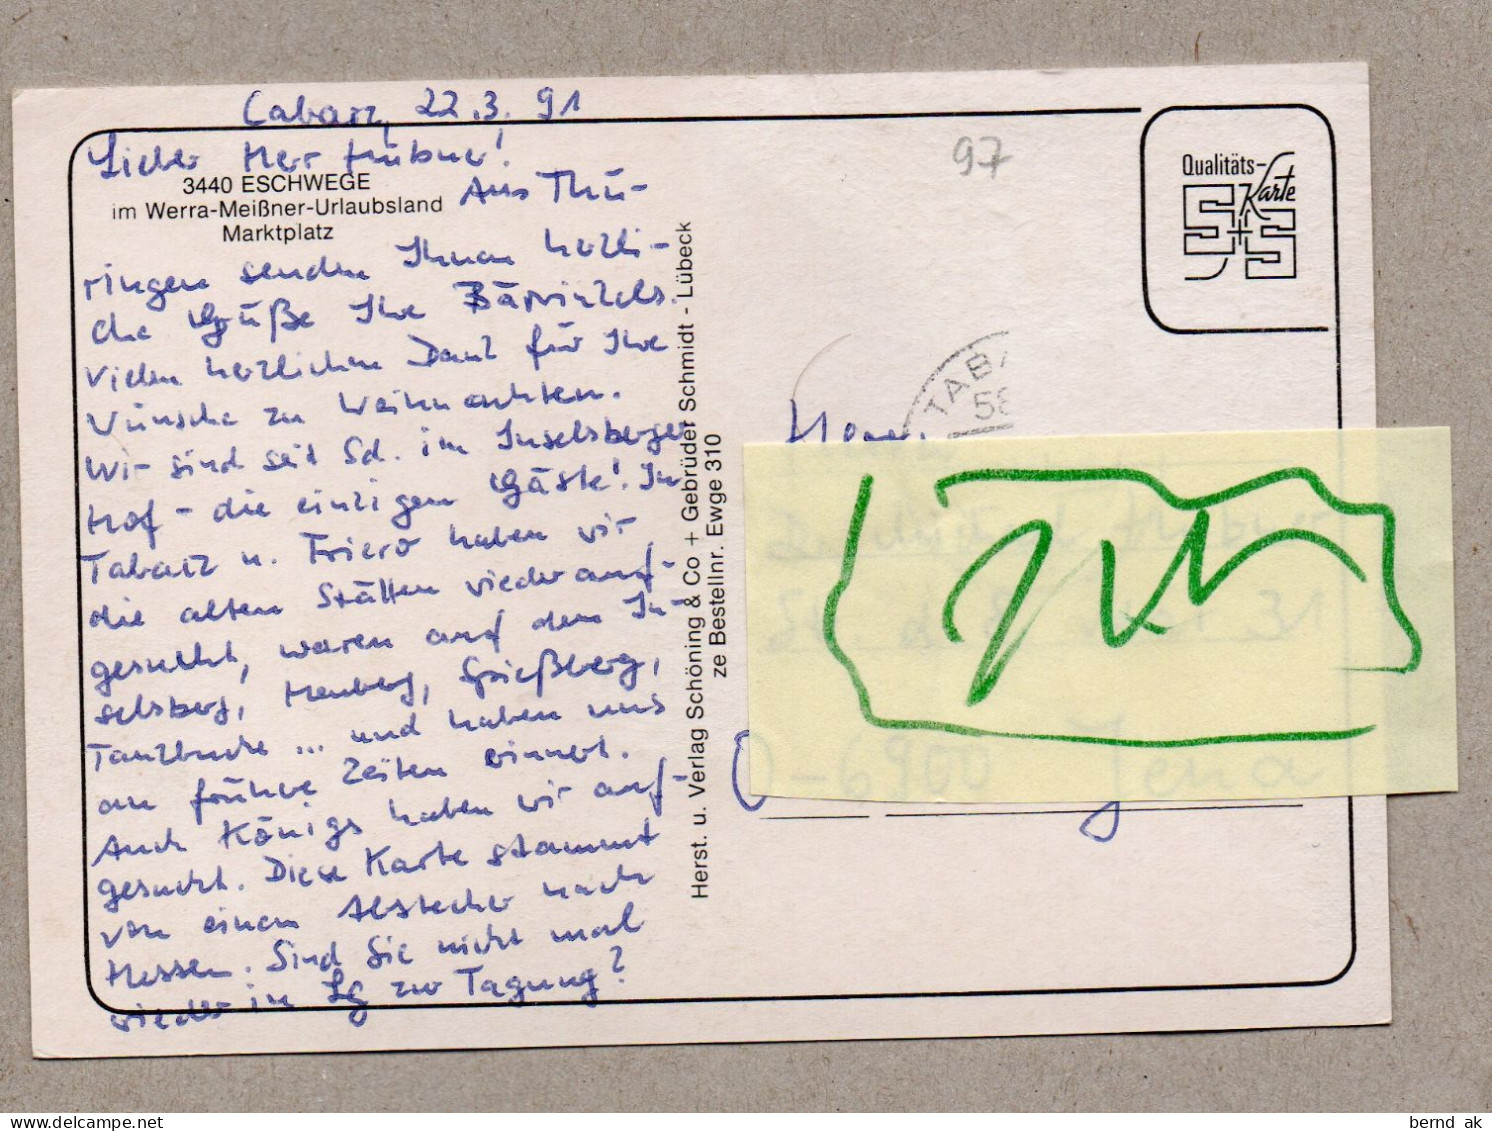 Cabarz, 22.3.91
Lieber Herr Hübner!
3440 ESCHWEGE
im Werra-Meißner-Urlaubsland
Marktplatz
Aus Thü-
ringen senden Ihnen herzli-
che Grüße Ihre
Vielen herzlichen Dank für Ihre
Wünsche zu Weihnachten.
Wir sind seit Sd. im Inselsberger
Hof - die einzigen Gäste! In
Tabarz u. Friedr haben wir
die alten Stätten wieder auf-
gesucht, waren auf dem In-
selsberg, Spießberg,
Tanzbuche ... und haben uns
an frühere Zeiten erinnert.
Auch Königs haben wir auf-
gesucht. Diese Karte stammt
von einem Abstecher nach
Hessen. Sind Sie nicht mal
wieder in Lg zur Tagung?
Herst. u. Verlag Schöning & Co + Gebrüder Schmidt - Lübeck
ze Bestellnr. Ewge 310
97
Qualitäts-
Karte
S+S
TABA
58
Herrn
31
O-6900 Jena
bernd ak